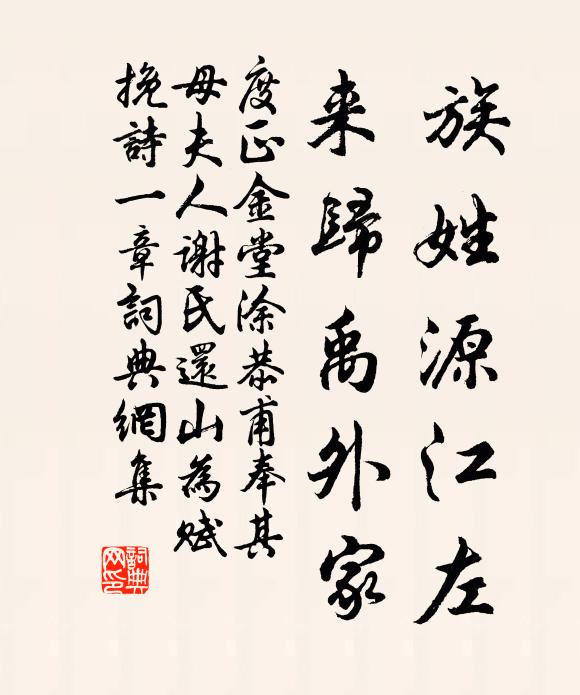 族姓源江左
来歸禹外家
度正金堂涂恭甫奉其
母夫人謝氏還山為賦
挽詩一章詞典網集
詞典
网印